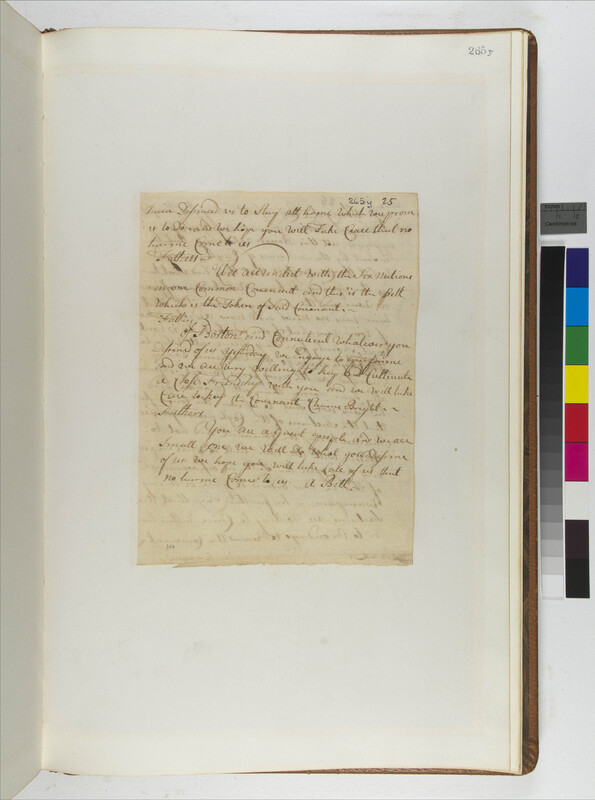 265y
265y 25
have Desired us to Stay att home Which you prom
is to do and We hope you Will Take Care that no
harme Come to us
Fathers
We are united With the Six Nations
in one Common Covenant and this is the Belt
Which is the Token of that Covenant
Fathers
of Boston and Connecticut Whatever you
desired of us yesterday We Engage to performe
and We are very Willing to keep and Cultivate
a Close Friendship With you and We Will take
Care to keep the Covenant Chaine Bright
Fathers
You are a great people and We are
Small one We Will do What you desire
of us We hope you Will take Care of us that
no harme Come to us. A Belt.